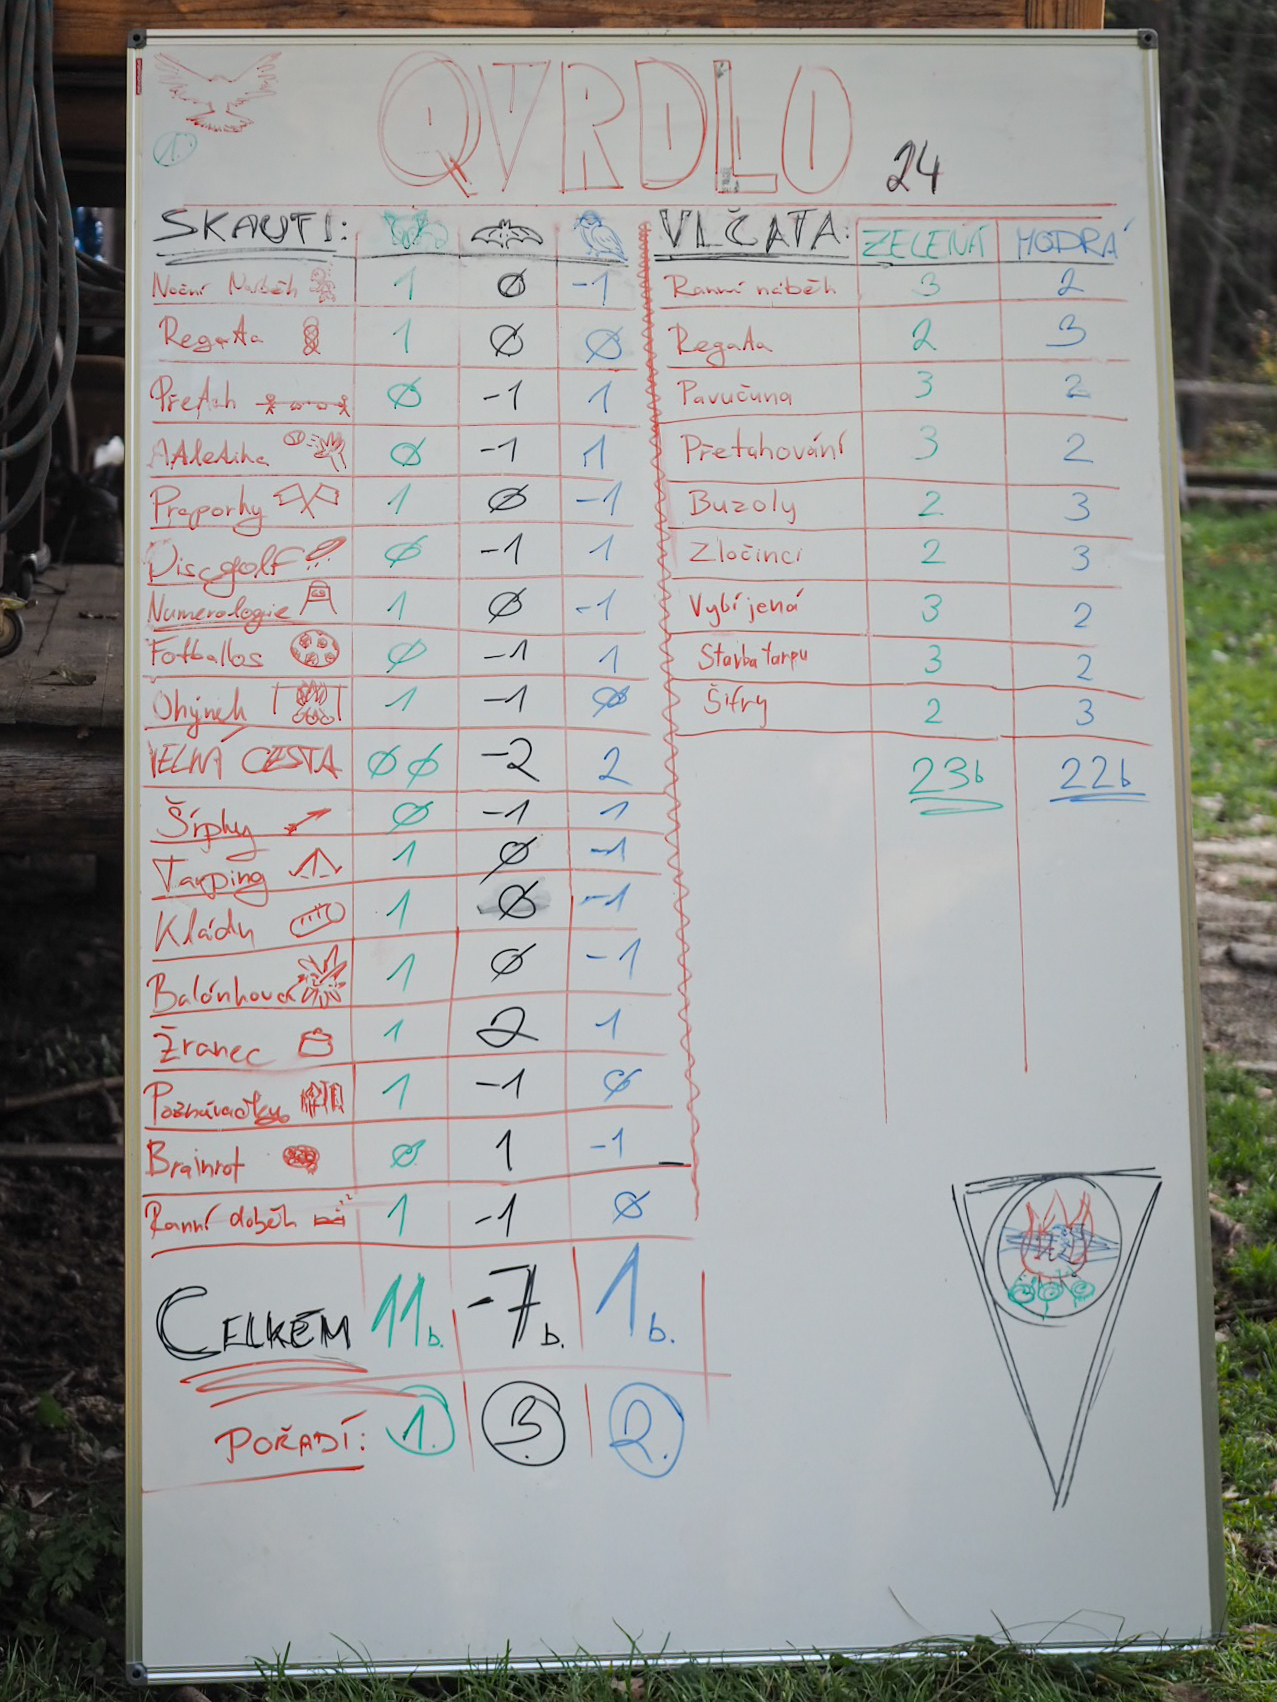 QVRDLO 24
1.
SKAUTI:
Noční Náběh 1 Ø -1
Regata 1 Ø Ø
Přetah Ø -1 1
Ø -1 1
Praporky 1 Ø -1
Discgolf Ø -1 1
Numerologie 1 Ø -1
Fotballos Ø -1 1
Ohýnek 1 -1 Ø
VELNÁ CESTA ØØ -2 2
Šípky Ø -1 1
Tarping 1 Ø -1
Klády 1 Ø -1
Balónkovka 1 Ø -1
Žranec 1 2 1
Poznávačky 1 -1 Ø
Brainrot Ø 1 -1
Ranní doběh 1 -1 Ø
CELKEM 11b. -7b. 1b.
POŘADÍ: 1. 3. 2.
VLČATA: ZELENÁ MODRÁ
Ranní náběh 3 2
Regata 2 3
Pavučina 3 2
Přetahování 3 2
Buzoly 2 3
Zločinci 2 3
Vybíjená 3 2
Stavba tarpu 3 2
Šifry 2 3
23b 22b